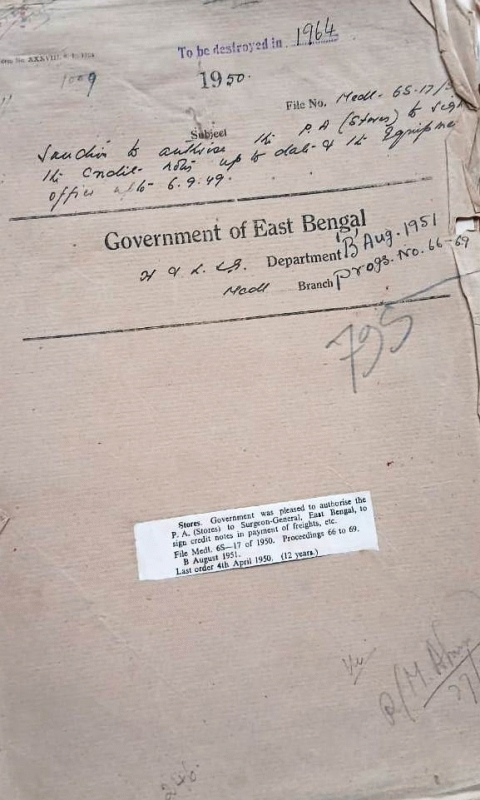 To be destroyed in 1964
1009
1950.
File No. Medl. 6S-17/
Subject
Sanction to authorise the P.A (Stores) to sign
the Credit notes up to date of the Equipme
office upto 6.9.49.
Government of East Bengal
H & L. S.G. Department 'B' Aug. 1951
Medl Branch Progs. No. 66-69
795
Stores. Government was pleased to authorise the
P. A. (Stores) to Surgeon-General, East Bengal, to
sign credit notes in payment of freights, etc.
File Medl. 6S—17 of 1950. Proceedings 66 to 69.
B August 1951.
Last order 4th April 1950. (12 years.)